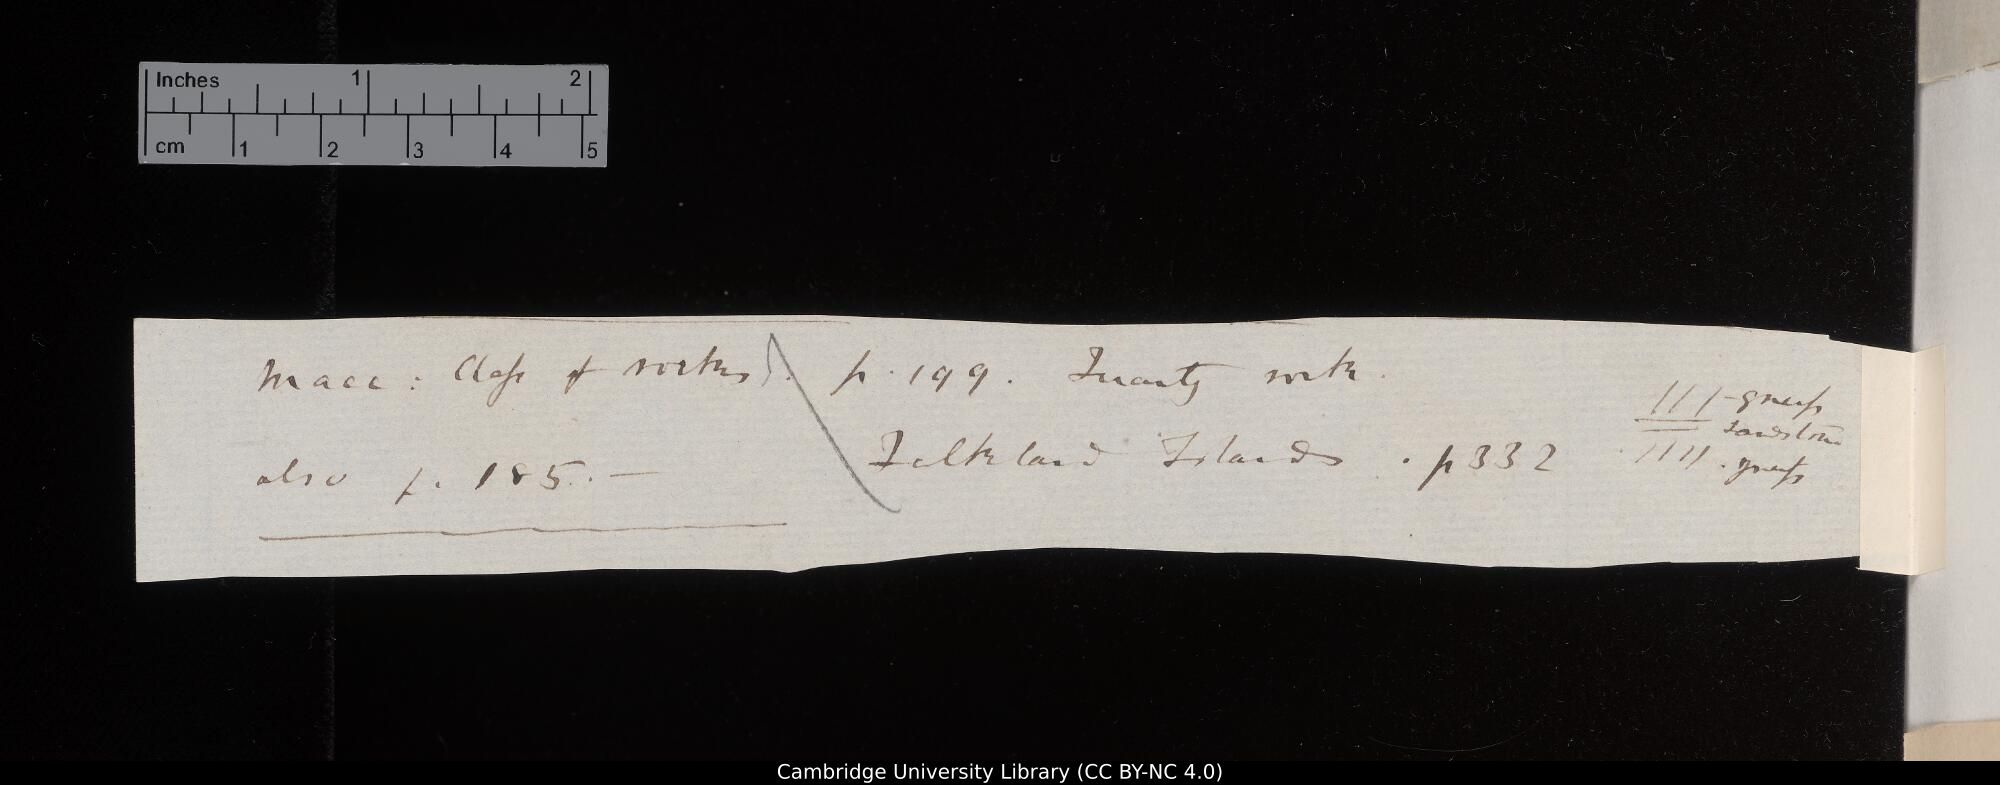 Inches 1 2
cm 1 2 3 4 5
Macc: Class of rocks. p. 199. Quartz rock.
also p. 185. — Falkland Islands. p 332
gneiss
sandstone
gneiss
Cambridge University Library (CC BY-NC 4.0)